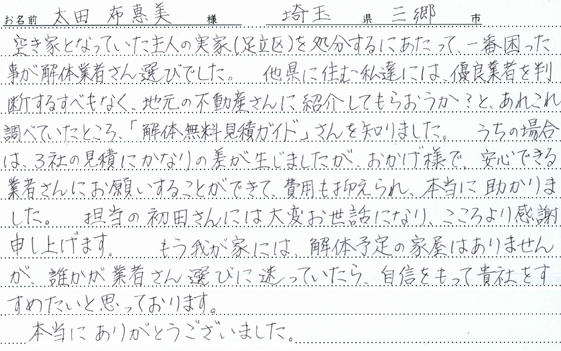 お名前 太田 布恵美 様 埼玉 県 三郷 市
空き家となっていた主人の実家(足立区)を処分するにあたって、一番困った
事が解体業者さん選びでした。 他県に住む私達には、優良業者を判
断するすべもなく、地元の不動産さんに紹介してもらおうか?と、あれこれ
調べていたところ、「解体無料見積ガイド」さんを知りました。 うちの場合
は、3社の見積にかなりの差が生じましたが、おかげ様で、安心できる
業者さんにお願いすることができて、費用も抑えられ、本当に助かりま
した。 担当の初田さんには大変お世話になり、こころより感謝
申し上げます。 もう我が家には、解体予定の家屋はありません
が、誰かが業者さん選びに迷っていたら、自信をもって貴社をす
すめたいと思っております。
本当にありがとうございました。